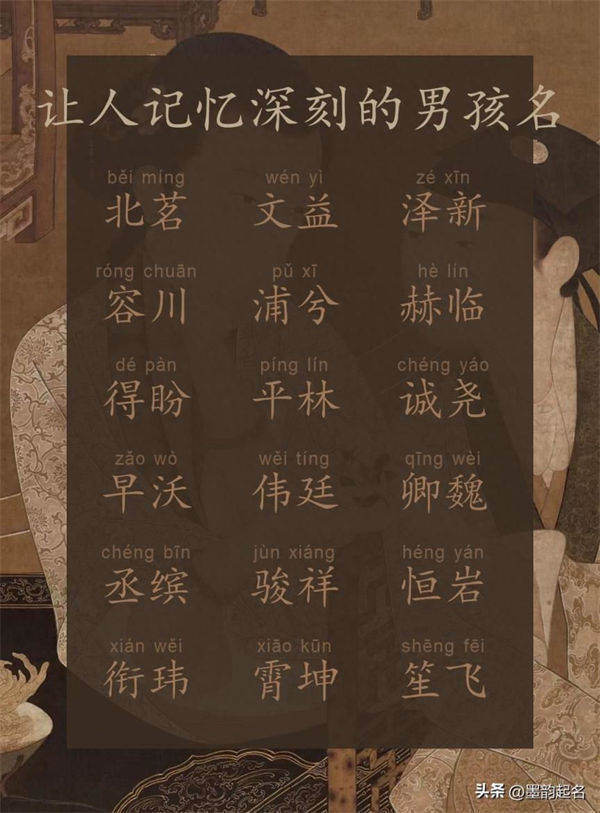 让人记忆深刻的男孩名
běi míng wén yì zé xīn
北茗 文益 泽新
róng chuān pǔ xī hè lín
容川 浦兮 赫临
dé pàn píng lín chéng yáo
得盼 平林 诚尧
zǎo wò wěi tíng qīng wèi
早沃 伟廷 卿魏
chéng bīn jùn xiáng héng yán
丞缤 骏祥 恒岩
xián wěi xiāo kūn shēng fēi
衔玮 霄坤 笙飞
头条 @墨韵起名